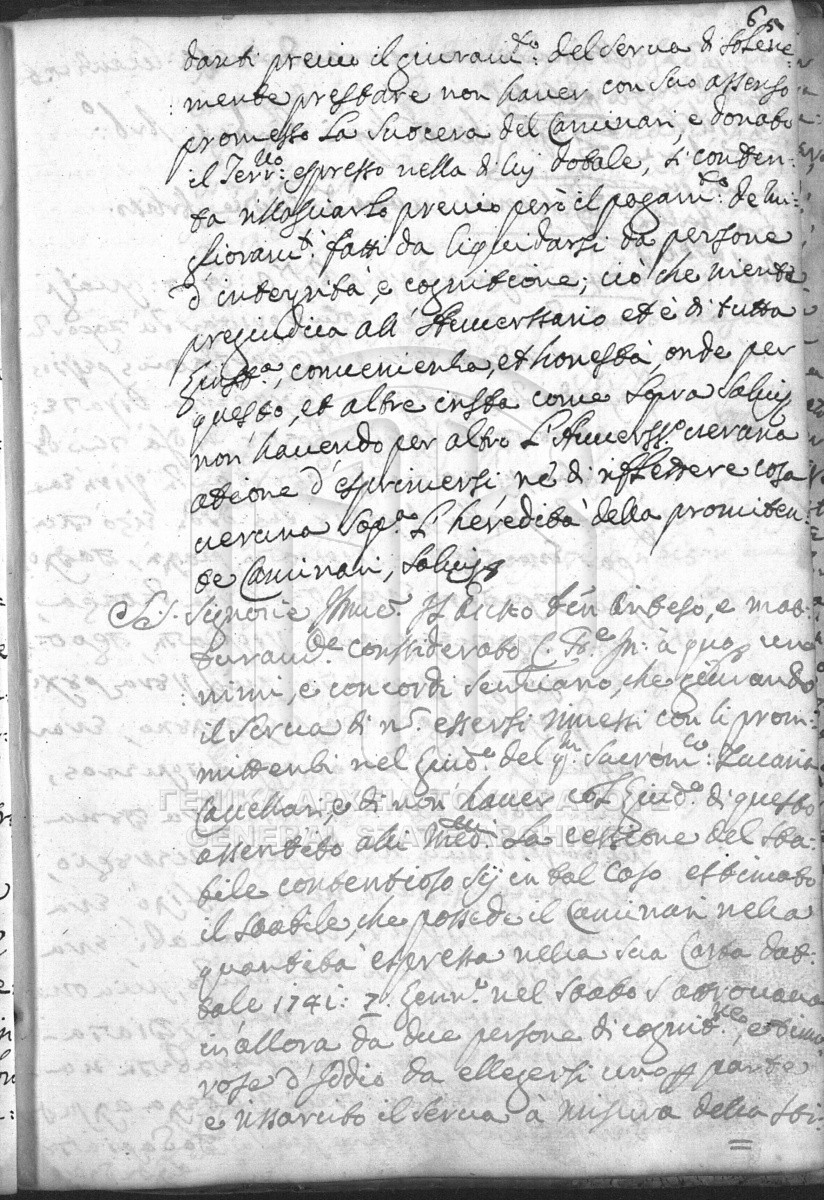 65
danti previo il giuram.to del Serua di solene=
mente prestare non hauer con suo assenso
promesso la Suocera del Caminari, e donato
il Terr.no espresso nella di lui dotale, si conten-
ta rillasciarlo previo però il pagam.to de mi-
glioram.ti fatti da liquidarsi da persone
d'integrità, e cognitione; ciò che niente
pregiudica all' Auuerssario et è di tutta
giust.a, conuenienza, et honestà, onde per
questo, et altre insta come sopra saluis
non hauendo per altro l'Auuerss.o ueruna
attione d'esprimersi, nè di riflettere cosa
ueruna sop.a l'heredità della promiten-
te Caminari, saluis
S.S. Signorie Ill.me il tutto ben inteso, e mat-
turam.te considerato una-
nimi, e concordi sentiano, che giurando
il Serua di n. essersi rimessi con li prom-
mittenti nel giud.o del q.m Sacrom.co Zucaria
Cauellari, e di non hauer col giud.o di questo
assentito alli med.mi la cessione del sta-
bile contentioso sij in tal caso estimato
il stabile, che possede il Caminari nella
quantità espressa nella sua Carta dot-
tale 1741: 7. Genn.o nel stato s'attrouaua
in allora da due persone di cognit.ne, e timo-
rose d'Iddio da ellegersi una p parte
e rissarcito il Serua à misura della sti-
ΓΕΝΙΚΑ ΑΡΧΕΙΑ ΤΟΥ ΚΡΑΤΟΥΣ
GENERAL STATE ARCHIVES